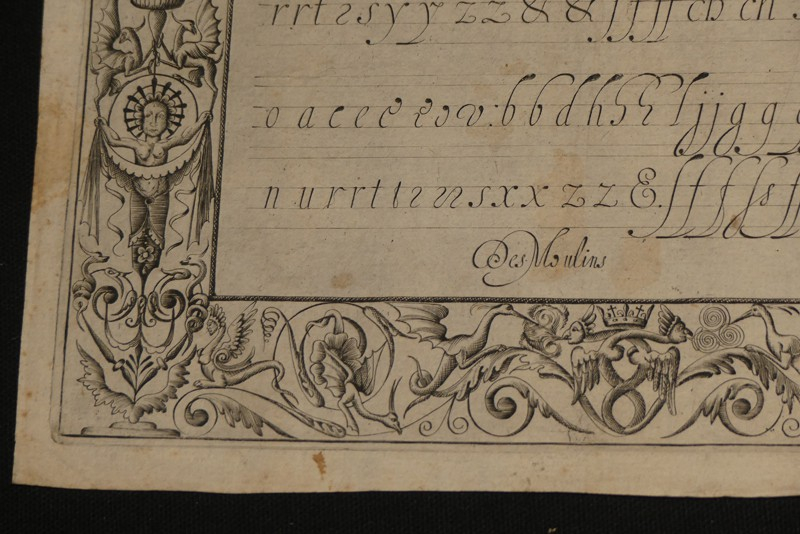 rrtꝛsyyzz&&ſſſſchch
oaceeeeov:bbdhhhljjggg
nurrttꝛꝛꝛsxxzz&ſſſſſsſ
DesMoulins